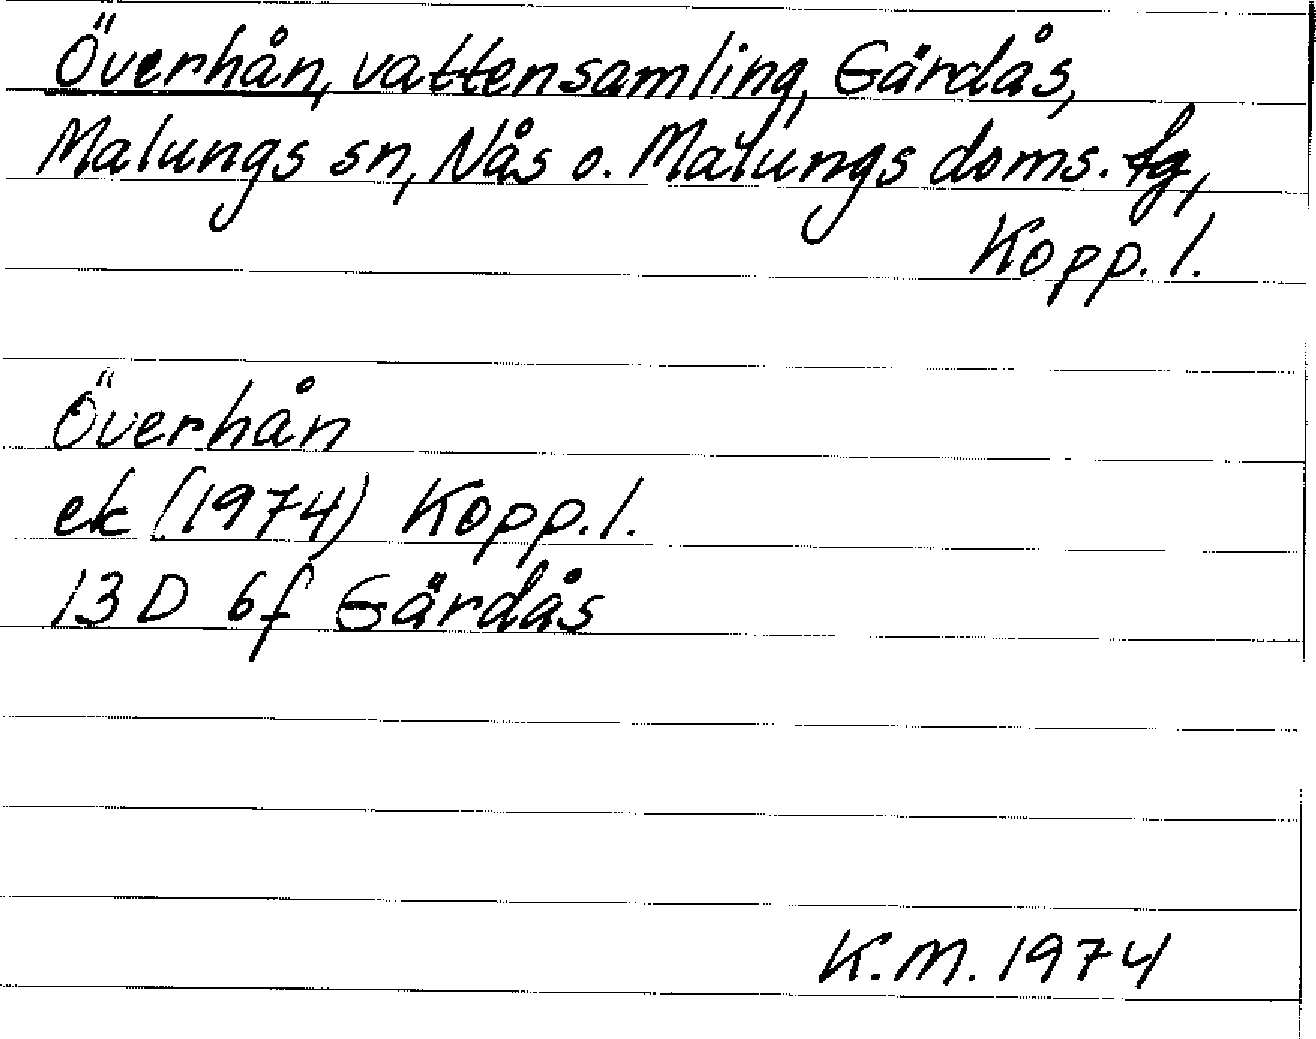 Överhån, vattensamling, Gärdås,
Malungs sn, Nås o. Malungs doms. fg,
Kopp. l.
Överhån
ek (1974) Kopp. l.
13D 6f Gärdås
K.M. 1974